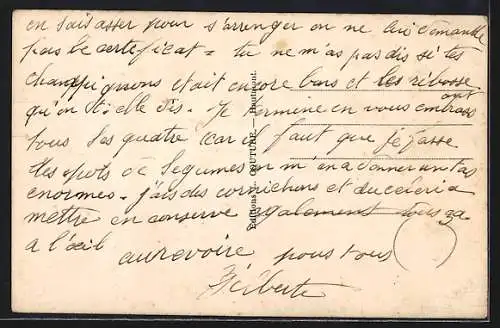 en sais asser pour s'arrenger on ne lui demande
pas le certeficat = tu ne m'as pas dis si tes
champignons etait encore bons et les ribosse
qu'on dis. Je termine en vous embrass ant
tous les quatre car il faut que je fasse
des pots de legumes on m'en a donner un tas
enormes. j'ais des cornichons et du celeri a
mettre en conserve egalement tous ça
a l'œil aurevoire pous tous
Editions COUTURE,